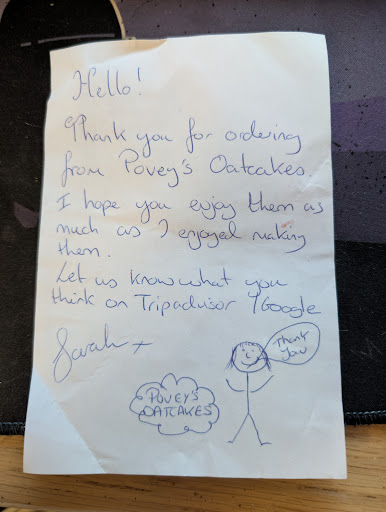 Hello!
Thank you for ordering
from Povey's Oatcakes
I hope you enjoy them as
much as I enjoyed making
them.
Let us know what you
think on Tripadvisor / Google
Sarah x
Thank
You
POVEY'S
OATCAKES